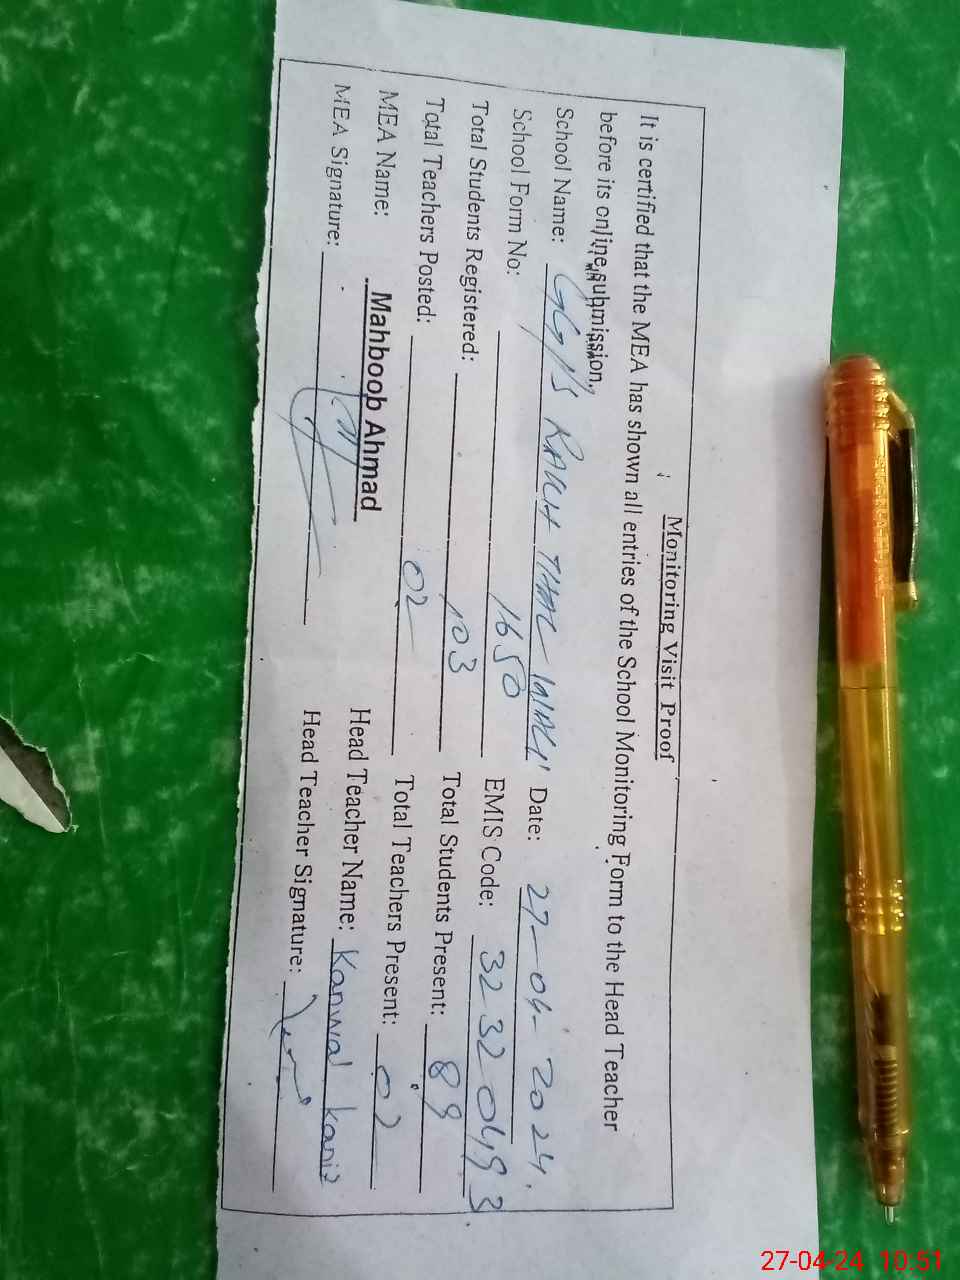 Monitoring Visit Proof
It is certified that the MEA has shown all entries of the School Monitoring Form to the Head Teacher
before its online submission.
School Name: RAKH THAL Date: 27-04-2024
School Form No: 1650 EMIS Code: 32320493
Total Students Registered: 103 Total Students Present: 89
Total Teachers Posted: 02 Total Teachers Present: 02
MEA Name: Mahboob Ahmad Head Teacher Name: Kanwal Kaniz
MEA Signature: Head Teacher Signature:
27-04-24 10:51